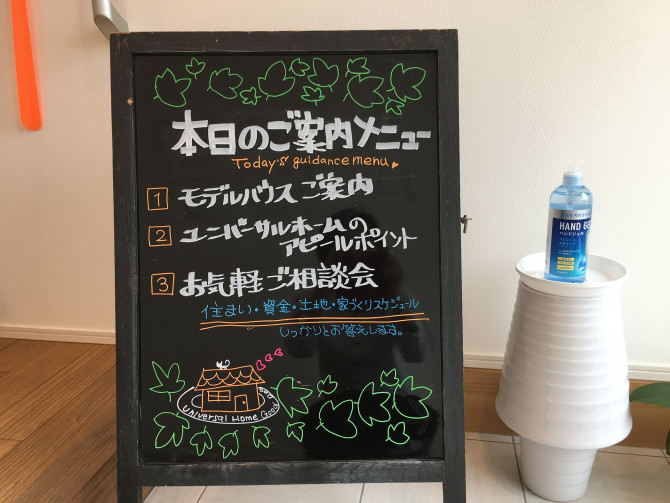 本日のご案内メニュー
Today's guidance menu
1 モデルハウスご案内
2 ユニバーサルホームの
アピールポイント
3 お気軽ご相談会
住まい・資金・土地・家づくりスケジュール
しっかりとお答えします。
Universal Home Good
HAND GE
ハンドジェル